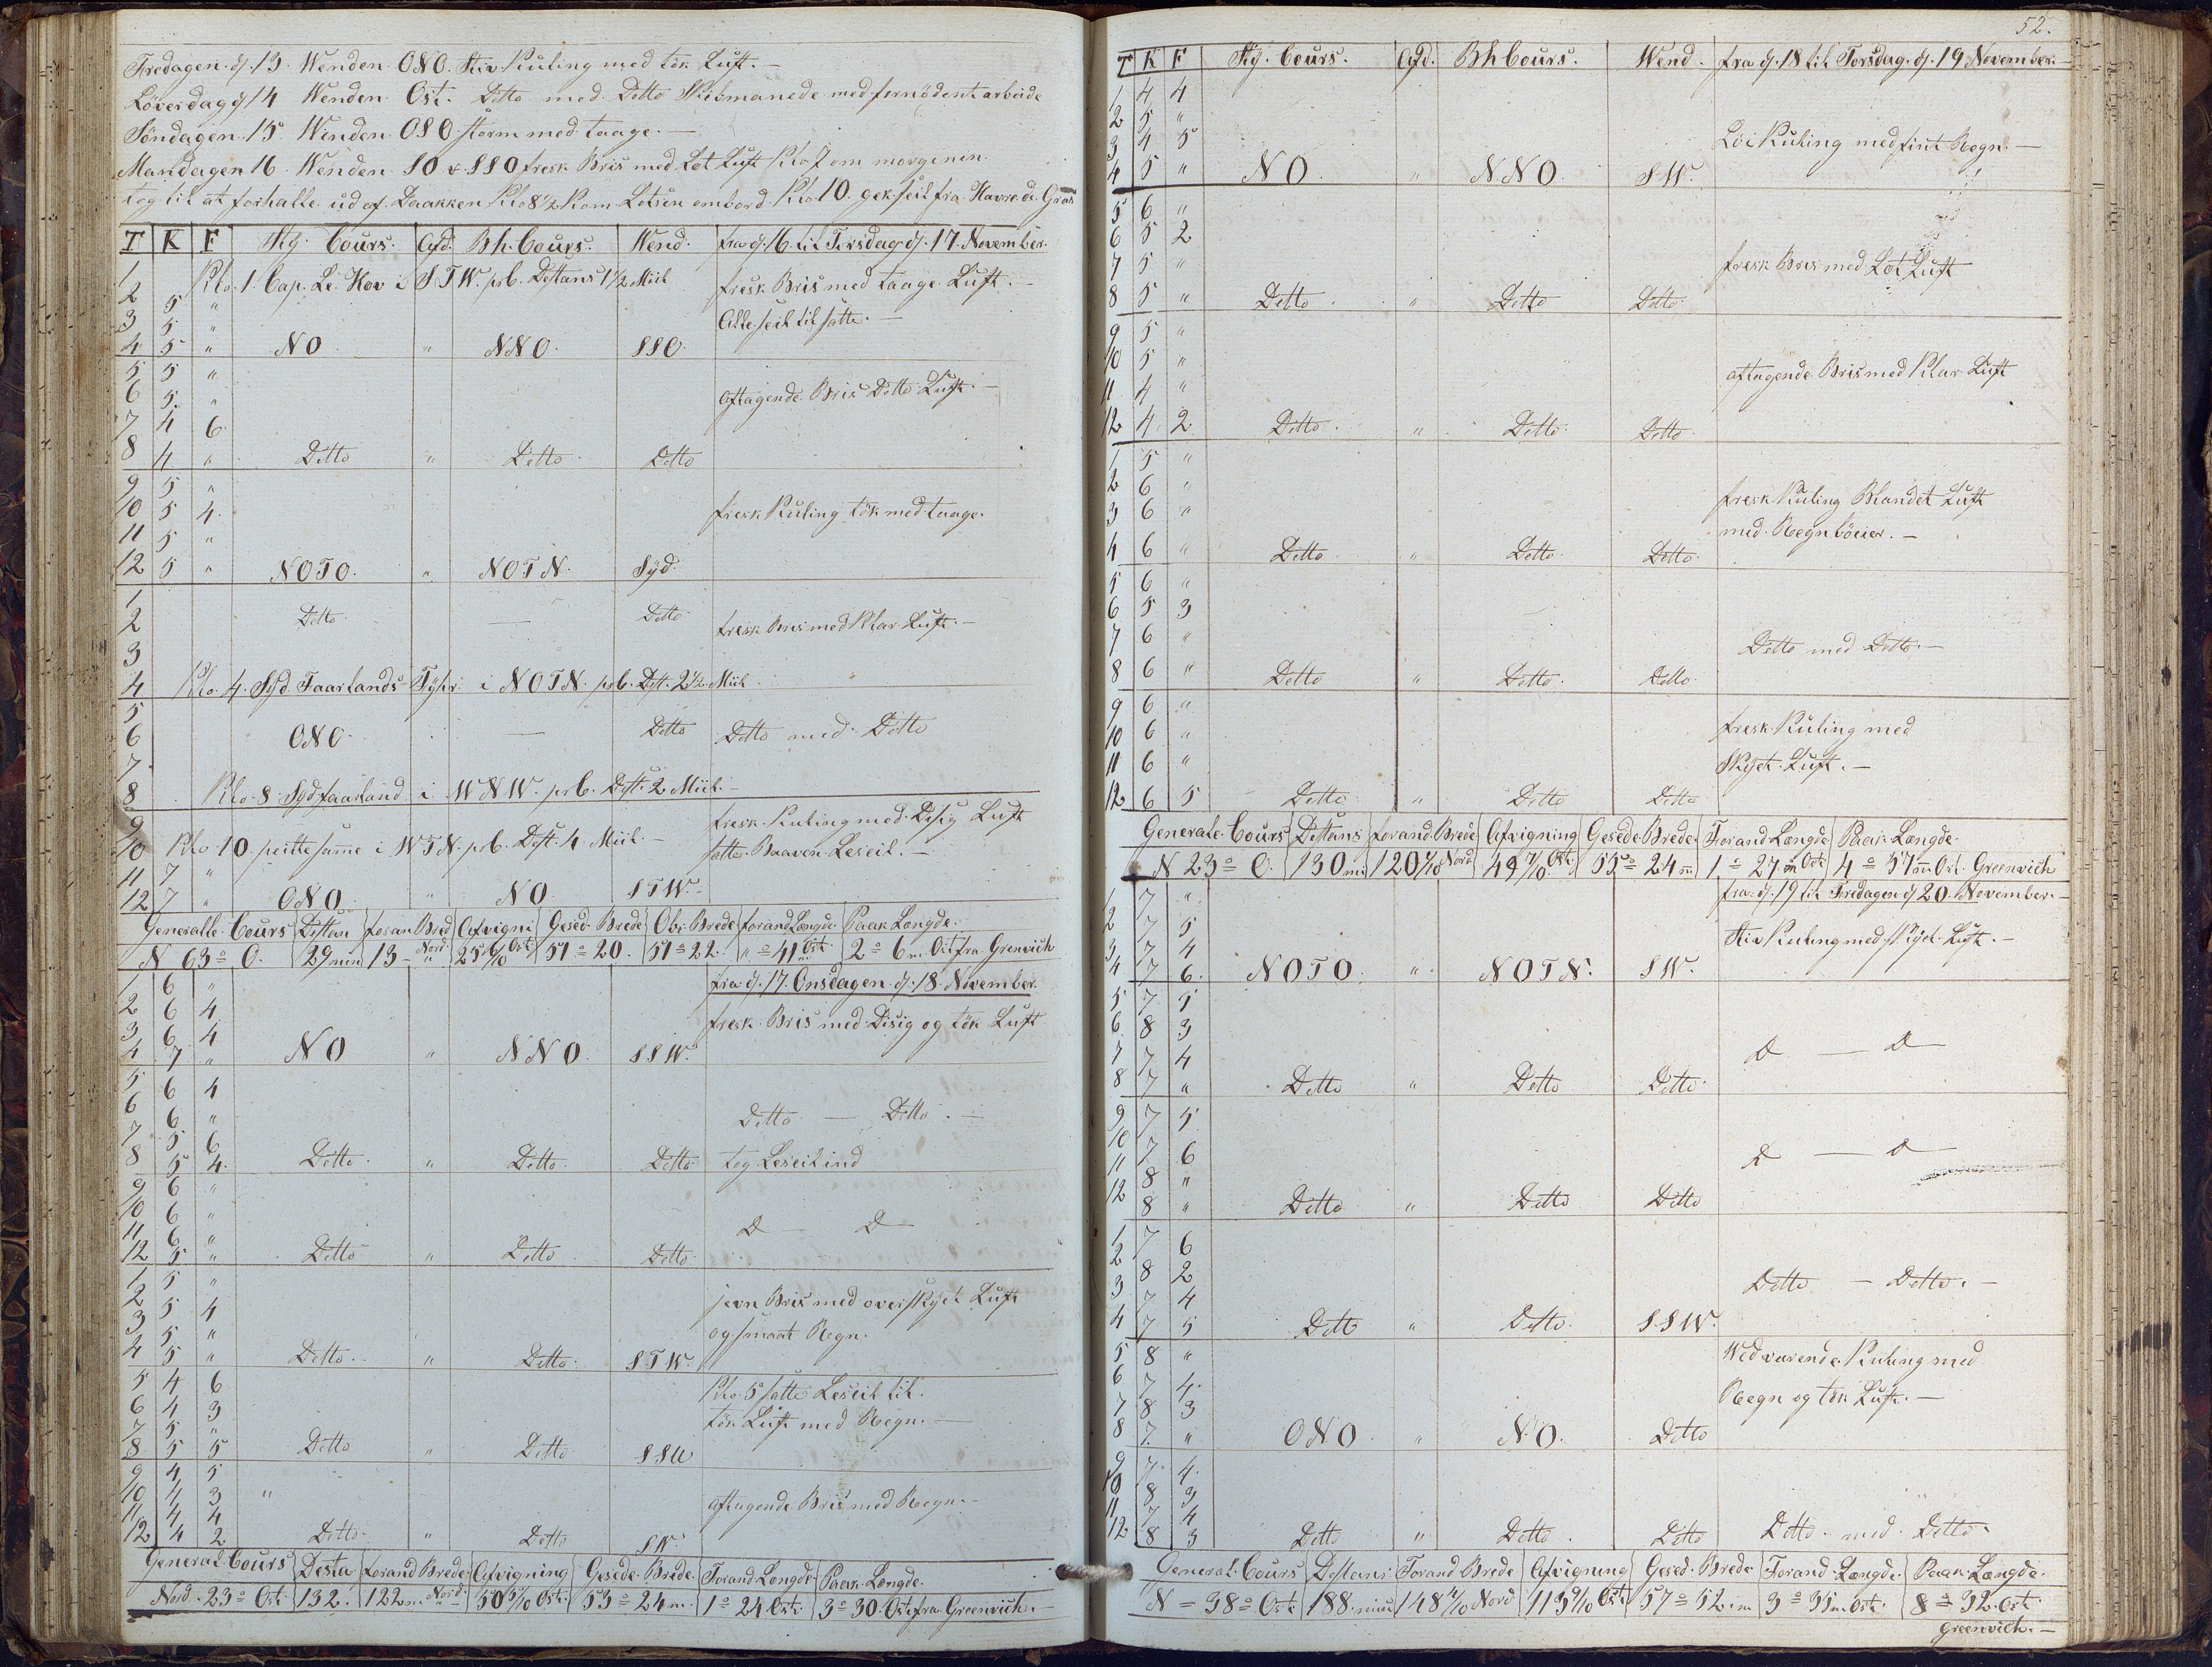 Fredagen. d. 13. Wenden. ONO. Stiv. Kuling med tök Luft. —
Löverdag d 14 Wenden Ost. Ditto med Ditto Skibmanede med fornödent arbeide
Söndagen. 15. Wenden. OSO. storm med taage. —
Mandagen 16. Wenden SO & SSO fresk Bris med Löt Luft Klo 7 om morgenen.
tog til at forhalle ud af Daakken Klo 8½ Kom Lotsen ombord Klo 10. gek seil fra Havre de Gras
T K F Stg. Cours. Afd. Bh. Cours. Wend. fra d. 16 til Tirsdag d. 17. November.
1 Klo. 1. Cap. Le. Hov i STW. prb. Distans 1½ Miil fresk Bris med taage Luft. —
2 5 "
3 5 " Alle seil til satte. —
4 5 " NO " NNO. SSO.
5 5 "
6 5 " aftagende Bris Ditto Luft. —
7 4 6
8 4 " Ditto " Ditto Ditto
9 5 "
10 5 4. fresk Kuling tök med taage.
11 5 "
12 5 " NOTO. " NOTN. Syd.
1
2 Ditto — Ditto fresk Bris med Klar Luft. —
3
4 Klo. 4. Syd Faarlands Fyhr i NOTN. prb. Dist. 2½ Miil
5
6 ONO — Ditto Ditto med Ditto
7
8 Klo. 8. Sydfaarland i WNW. prb. Dist. 2 Miil. —
9 fresk Kuling med Disig Luft
10 Klo. 10. peilte samme i WTN. prb. Dist. 4 Miil. — satte Baaven Leseil. —
11 7 "
12 7 " ONO " NO STW.
Generalle Cours Distan foran Bred Afvigni Gesed. Brede Obs. Brede forand Længde Paak. Længde.
N 63° O. 29 min 13 Nord 25 6/10 Ost 51° 20. 51° 22. "° 41 Ost. 2° 6 m. Ost fra Grenvich
fra d. 17. Onsdagen d. 18. November.
1 6 "
2 6 4 fresk Bris med Disig og tök Luft
3 6 4
4 7 " NO " NNO. SSW.
5 6 4
6 6 " Ditto — Ditto. —
7 5 6
8 5 4. Ditto " Ditto Ditto tog Leseil ind
9 6 "
10 6 "
11 6 " D D
12 5 " Ditto " Ditto Ditto
1 5 "
2 5 4 jevn Bris med overskyet Luft
3 5 " og smaat Regn.
4 5 " Ditto. " Ditto. STW.
5 4 6 Klo. 5 satte Leseil til.
6 4 3 tök Luft med Regn. —
7 5 "
8 5 5 Ditto " Ditto SSW
9 4 5
10 4 3 " aftagende Bris med Regn. —
11 4 4
12 4 2 Ditto " Ditto SW.
General Cours Dista forand Brede Afvigning Gesede. Brede. Forand Længde Paak. Længde.
Nord. 23° Ost. 132. 122 m. Nord. 50 5/10 Ost. 53° 24 m. 1° 24 Ost. 3° 30. Ost fra Greenvich. —
52.
T K F Stg. Cours. Afd. Bh Cours. Wend. fra d. 18 til Torsdag. d. 19 November.
1 4 4
2 5 "
3 4 5 Löi Kuling med fint Regn. —
4 5 " NO. " NNO. SW.
5 6 "
6 5 2
7 5 " fresk Bris med Löt Luft
8 5 " Ditto " Ditto Ditto
9 5 "
10 5 " aftagende Bris med Klar Luft
11 4 "
12 4 2 Ditto. " Ditto Ditto
1 5 "
2 6 " fresk Kuling Blandet Luft
3 6 " med. Regn böeier. —
4 6 " Ditto " Ditto Ditto
5 6 "
6 5 3
7 6 " Ditto med Ditto. —
8 6 " Ditto " Ditto. Ditto
9 6 "
10 6 " fresk Kuling med
11 6 " Skyet Luft. —
12 6 5 Ditto " Ditto Ditto
Generale Cours Distans forand. Brede Afvigning Gesede. Brede. Forand Længde Paak Længde.
N 23° O. 130 m. 120 1/10 Nord 49 7/10 Ost. 55° 24 m. 1° 27 m Ost 4° 57 m Ost. Greenvich
fra d. 19 til Fredagen d 20. November. —
1 7 "
2 7 5 Stiv Kuling med skyet Luft. —
3 7 4
4 7 6. NOTO " NOTN. SW.
5 7 5
6 8 3
7 7 4 D — D
8 7 " Ditto " Ditto Ditto
9 7 5
10 7 6
11 8 " D — D
12 8 " Ditto " Ditto Ditto
1 7 6
2 8 2 Ditto — Ditto. —
3 7 4
4 7 5 Ditto " Ditto. SSW.
5 8 " Wedvarende Kuling med
6 7 4. Regn og tök Luft. —
7 8 3
8 7 " ONO " NO. Ditto
9 7 4.
10 8 3
11 7 4
12 8 3 Ditto " Ditto. Ditto Ditto med Ditto
General. Cours Distans Forand Brede Afvigning Gesed. Brede Forand Længde. Paak Længde.
N = 38° Ost 188 min 148 4/10 Nord 113 9/10 Ost 57° 52. m 3° 35 m. Ost. 8° 32. Ost.
Greenvich. —